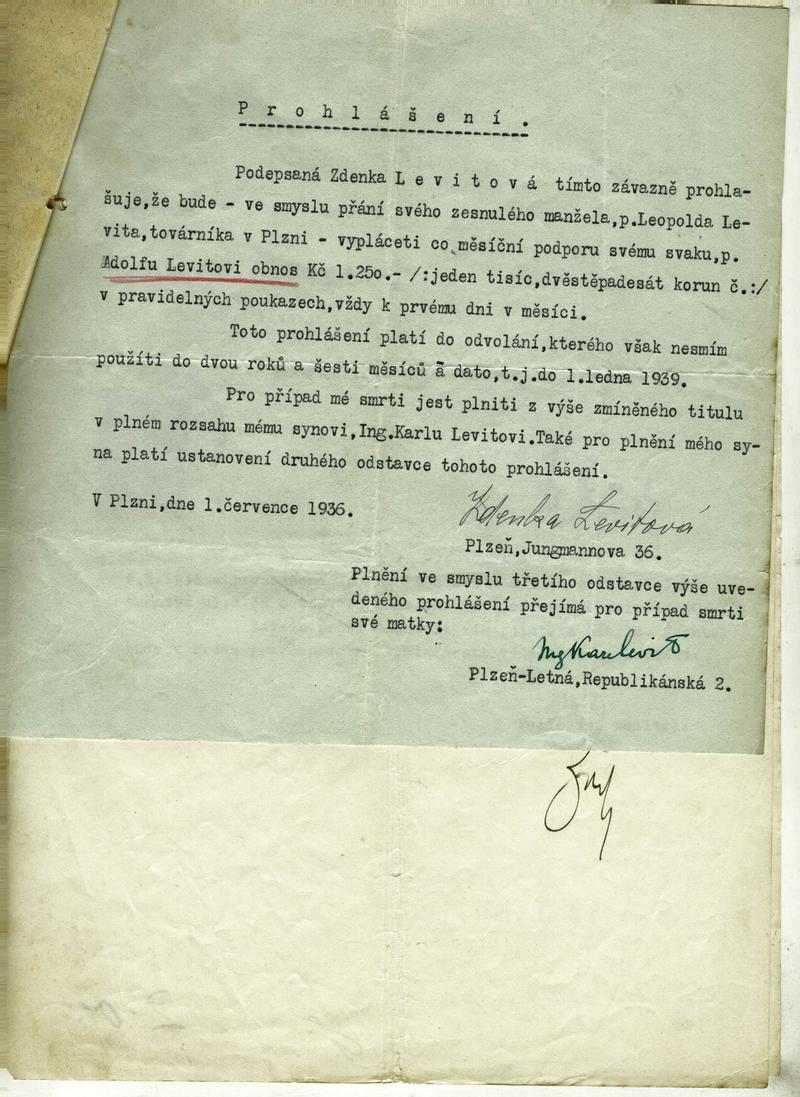 P r o h l á š e n í .
Podepsaná Zdenka L e v i t o v á tímto závazně prohla-
šuje,že bude - ve smyslu přání svého zesnulého manžela,p.Leopolda Le-
vita,továrníka v Plzni - vypláceti co měsíční podporu svému svaku,p.
Adolfu Levitovi obnos Kč 1.25o.- /:jeden tisíc,dvěstěpadesát korun č.:/
v pravidelných poukazech,vždy k prvému dni v měsíci.
Toto prohlášení platí do odvolání,kterého však nesmím
použíti do dvou roků a šesti měsíců ā dato,t.j.do 1.ledna 1939.
Pro případ mé smrti jest plniti z výše zmíněného titulu
v plném rozsahu mému synovi,Ing.Karlu Levitovi.Také pro plnění mého sy-
na platí ustanovení druhého odstavce tohoto prohlášení.
V Plzni,dne 1.července 1936.
Zdenka Levitová
Plzeň,Jungmannova 36.
Plnění ve smyslu třetího odstavce výše uve-
deného prohlášení přejímá pro případ smrti
své matky:
Ing Karel Levit
Plzeň-Letná,Republikánská 2.